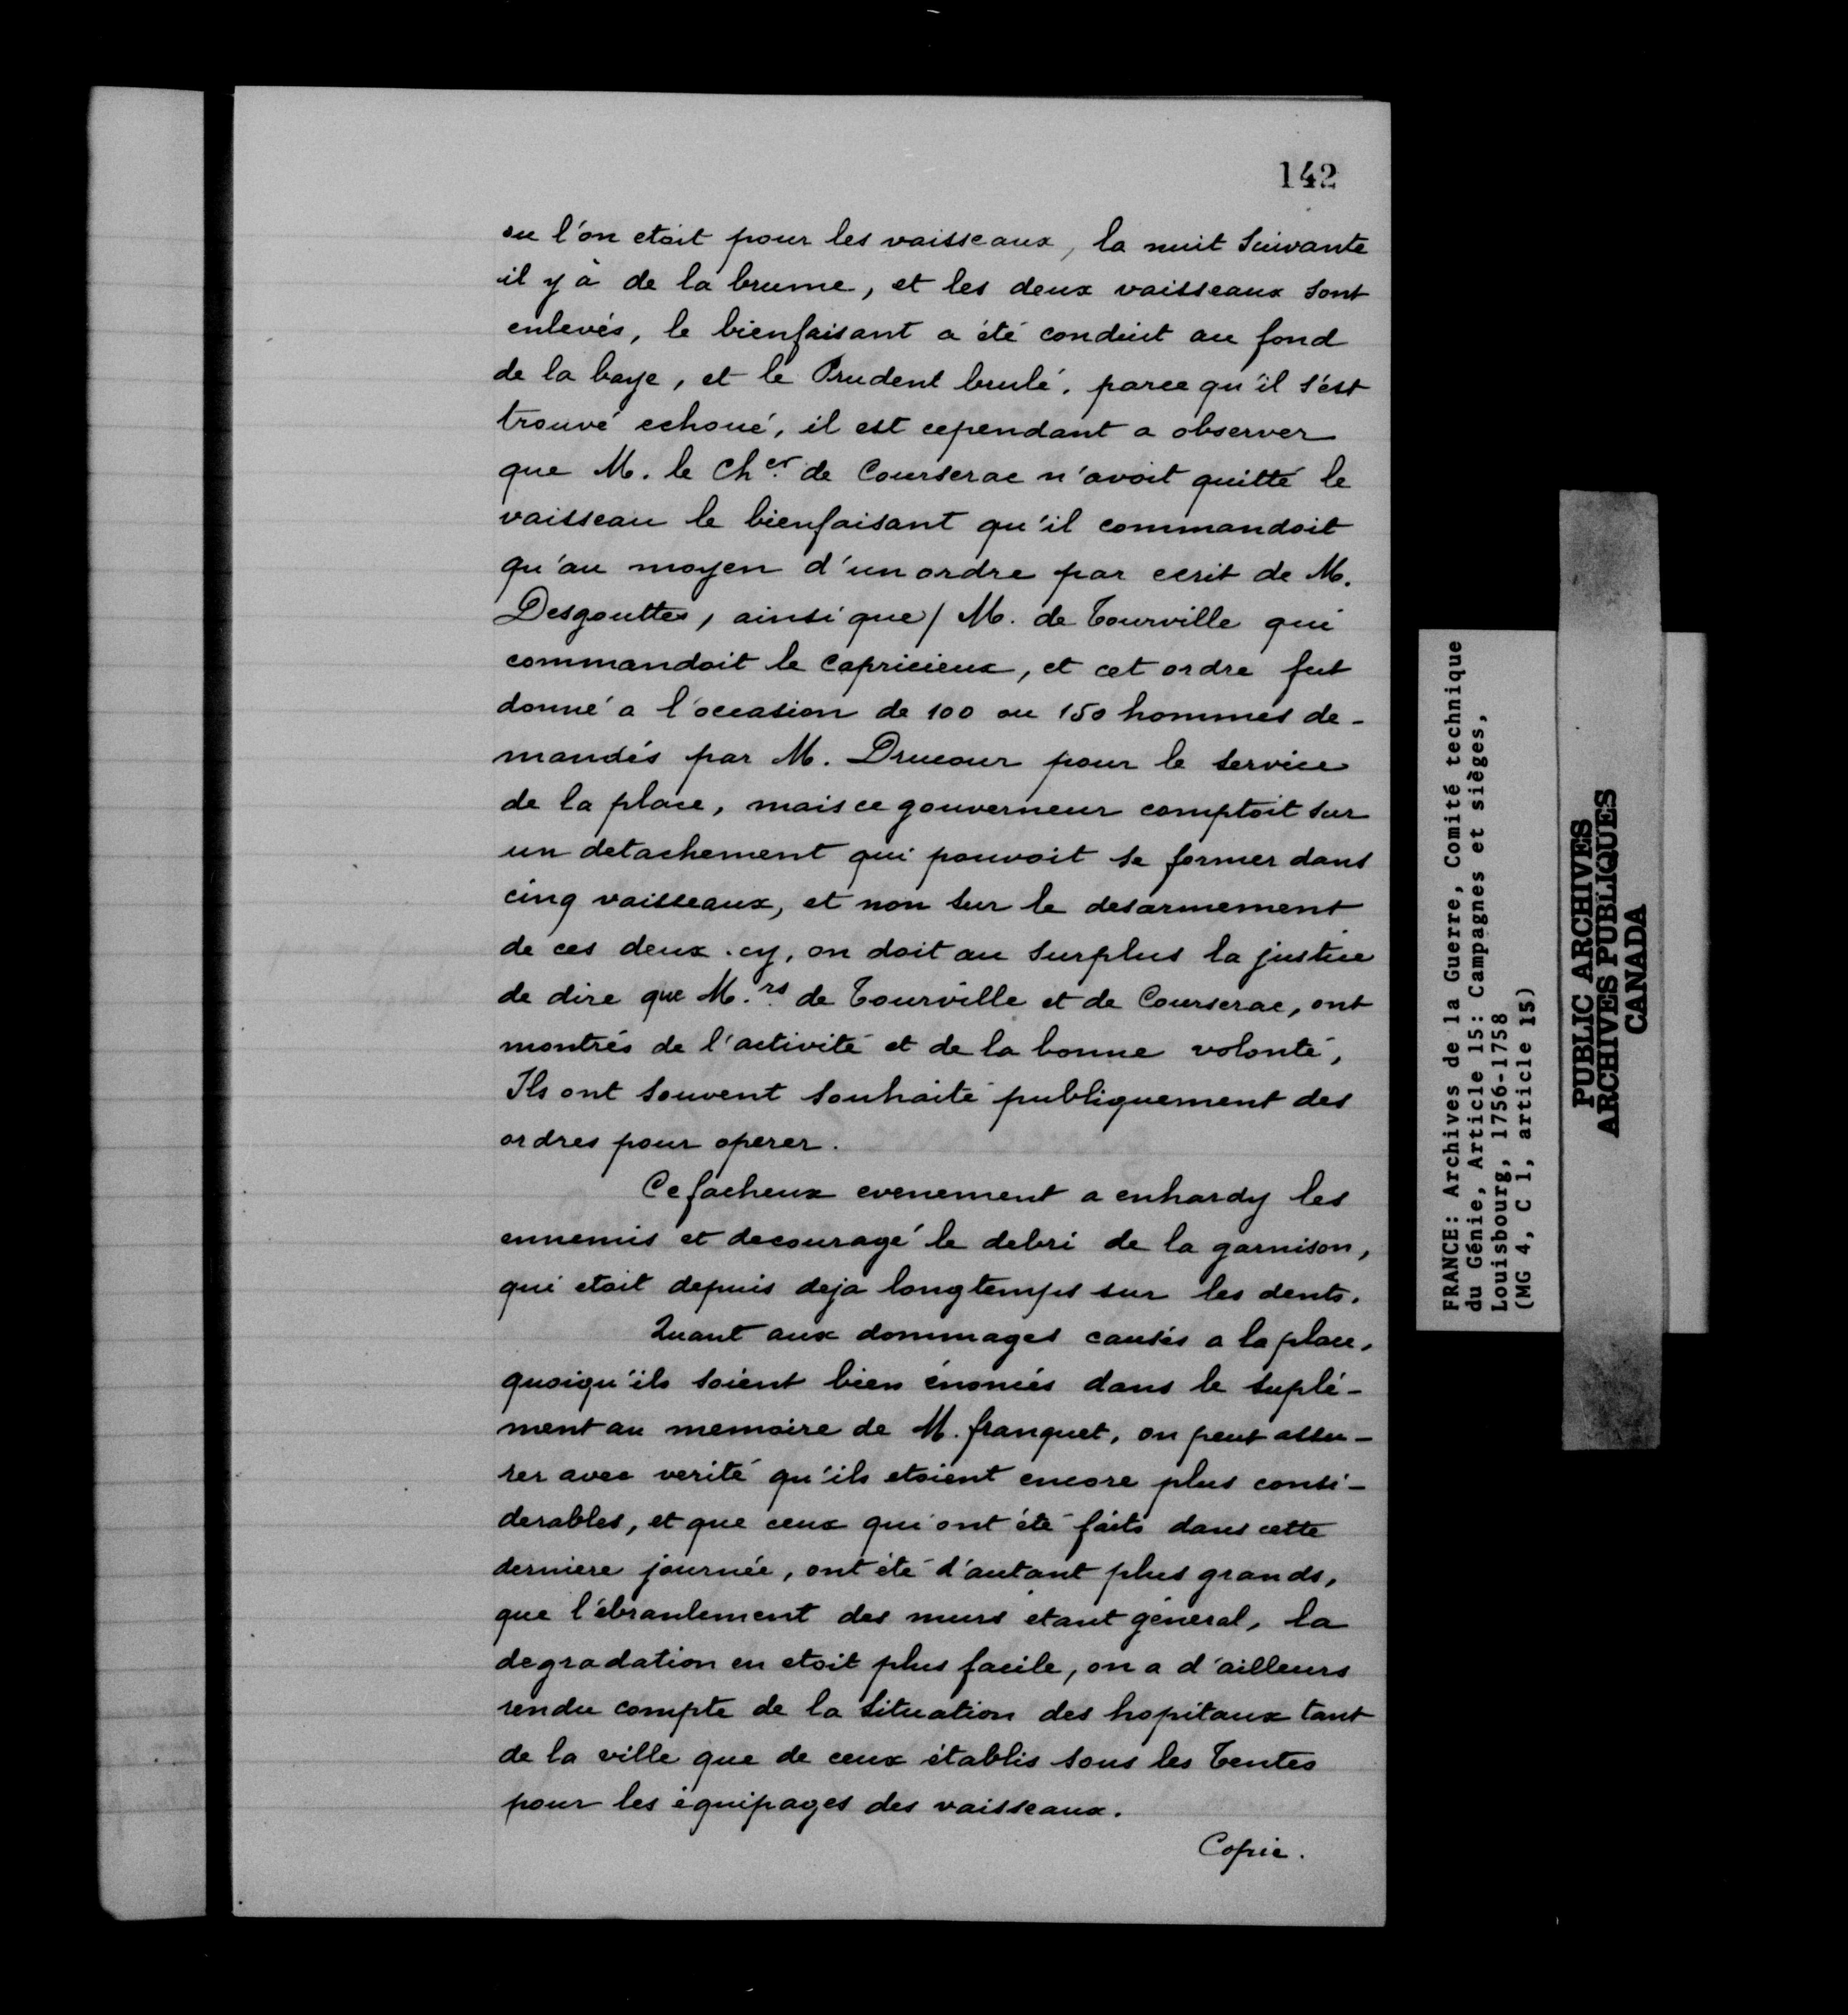 142
ou l'on etoit pour les vaisseaux, la nuit suivante
il y à de la brume, et les deux vaisseaux sont
enlevés, le bienfaisant a été conduit au fond
de la baye, et le Prudent brulé, parce qu'il s'est
trouvé echoué, il est cependant a observer
que M. le Ch.er de Courserac n'avoit quitté le
vaisseau le bienfaisant qu'il commandoit
qu'au moyen d'un ordre par ecrit de M.
Desgouttes, ainsi que / M. de Tourville qui
commandoit le Capricieux, et cet ordre fut
donné a l'occasion de 100 ou 150 hommes de-
mandés par M. Drucour pour le service
de la place, mais ce gouverneur comptoit sur
un detachement qui pouvoit se former dans
cinq vaisseaux, et non sur le desarmement
de ces deux . cy, on doit au surplus la justice
de dire que M.rs de Tourville et de Courserac, ont
montrés de l'activité et de la bonne volonté,
Ils ont souvent souhaité publiquement des
ordres pour operer.
Ce facheux evenement a enhardy les
ennemis et decouragé le debri de la garnison,
qui etoit depuis deja longtemps sur les dents.
Quant aux dommages causés a la place,
quoiqu'ils soient bien énoncés dans le suplé-
ment au memoire de M. franquet, on peut assu-
rer avec verité qu'ils etoient encore plus consi-
derables, et que ceux qui ont été faits dans cette
derniere journée, ont été d'autant plus grands,
que l'ébranlement des murs etant général, la
degradation en etoit plus facile, on a d'ailleurs
rendu compte de la situation des hopitaux tant
de la ville que de ceux établis sous les Tentes
pour les équipages des vaisseaux.
Copie.
FRANCE: Archives de la Guerre, Comité technique
du Génie, Article 15: Campagnes et sièges,
Louisbourg, 1756-1758
(MG 4, C 1, article 15)
PUBLIC ARCHIVES
ARCHIVES PUBLIQUES
CANADA